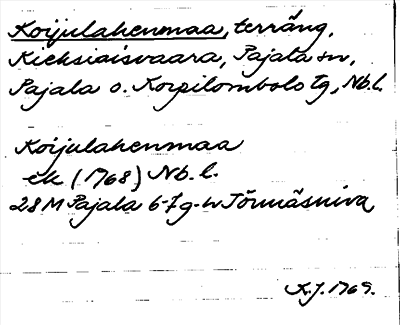 Koijulahenmaa, terräng,
Kieksiäisvaara, Pajala sn,
Pajala o. Korpilombolo tg, Nb.l.
Koijulahenmaa
ek (1768) Nb.l.
28 M Pajala 6-7 g-h Törmäsniva
K.J. 1969.